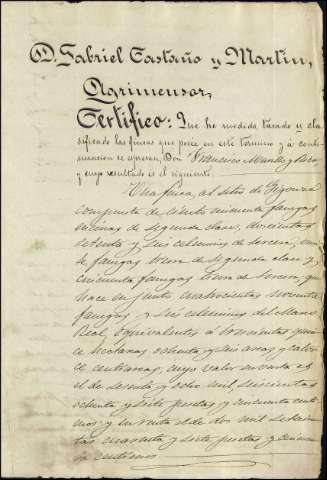 D. Gabriel Castaño y Martin,
Agrimensor,
Certifico: Que he medido tasado y cla
sificado las fincas que posee en este termino y á conti-
nuacion se espresan, Don Francisco
y cuyo resultado es el siguiente
Una finca, al sitio de
compuesta de ciento cincuenta fanegas
encinas de segunda clase, doscientas
setenta y seis celemines de tercera,
fanegas tierra de segunda clase y
cincuenta fanegas tierra de tercera que
hace en junto cuatrocientas noventa
fanegas y seis celemines del Marco
Real, equivalentes á trescientas quin
ce hectareas ochenta y seis areas y catorce
centiareas, cuyo valor en venta es
el de sesenta y ocho mil seiscientas
ochenta y siete pesetas y cincuenta cénti
mos: y en renta el de dos mil setecien
tas cuarenta y siete pesetas y cincuen
ta centimos